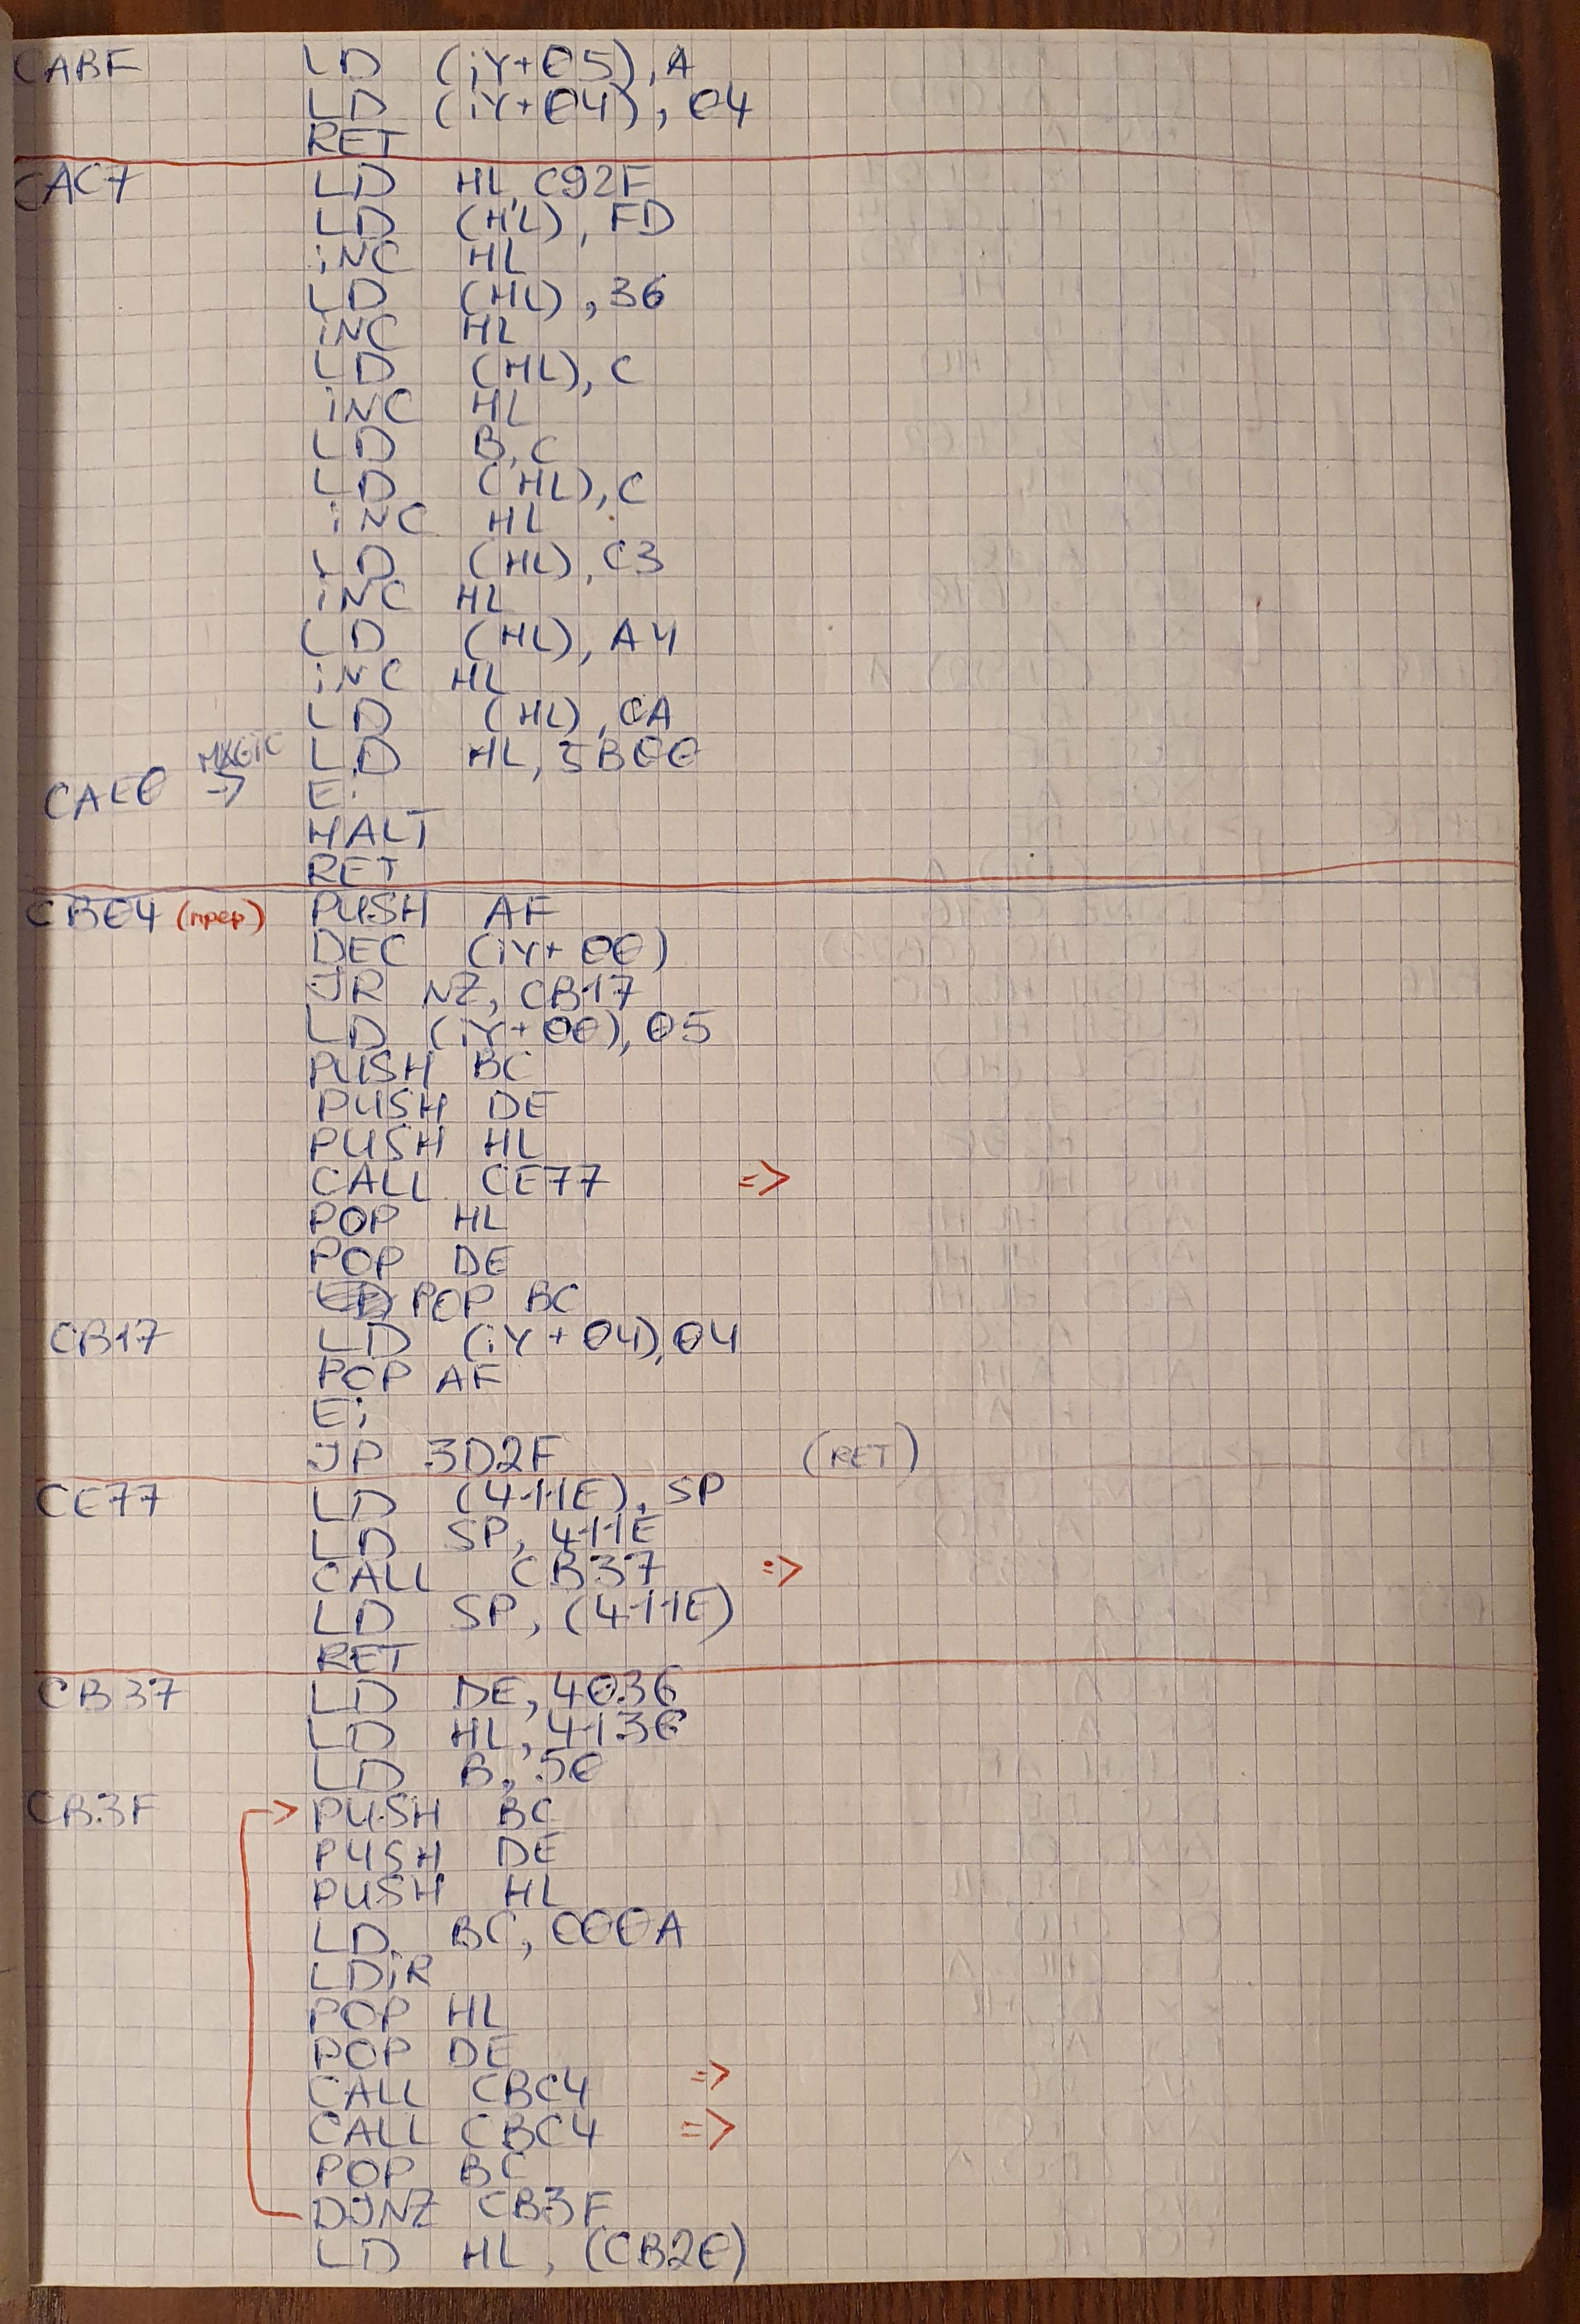 CABF LD (iY+05),A
LD (iY+04),04
RET
CAC7 LD HL,C92F
LD (HL),FD
iNC HL
LD (HL),36
iNC HL
LD (HL),C
iNC HL
LD B,C
LD (HL),C
iNC HL
LD (HL),C3
iNC HL
LD (HL),A4
iNC HL
LD (HL),CA
LD HL,5B00
CAE0 MAGIC -> Ei
HALT
RET
CB04 (прер) PUSH AF
DEC (iY+00)
JR NZ,CB17
LD (iY+00),05
PUSH BC
PUSH DE
PUSH HL
CALL CE77 =>
POP HL
POP DE
POP BC
CB17 LD (iY+04),04
POP AF
Ei
JP 3D2F (RET)
CE77 LD (411E),SP
LD SP,411E
CALL CB37 =>
LD SP,(411E)
RET
CB37 LD DE,4036
LD HL,4130
LD B,50
CB3F PUSH BC
PUSH DE
PUSH HL
LD BC,000A
LDiR
POP HL
POP DE
CALL CBC4 =>
CALL CBC4 =>
POP BC
DJNZ CB3F
LD HL,(CB20)